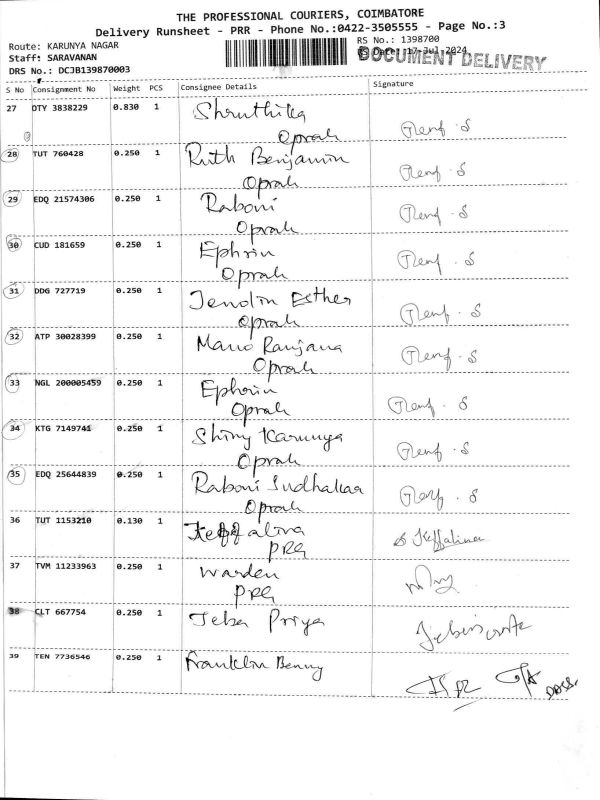 THE PROFESSIONAL COURIERS, COIMBATORE
Delivery Runsheet - PRR - Phone No.:0422-3505555 - Page No.:3
Route: KARUNYA NAGAR RS No.: 1398700
Staff: SARAVANAN Date: 17-Jul-2024
DOCUMENT DELIVERY
DRS No.: DCJB139870003
S No Consignment No Weight PCS Consignee Details Signature
27 DTY 3838229 0.830 1 Shruthika
Oprah
28 TUT 760428 0.250 1 Ruth Benjamin
Oprah
29 EDQ 21574306 0.250 1 Raboni
Oprah
30 CUD 181659 0.250 1 Ephrin
Oprah
31 DDG 727719 0.250 1 Jendin Esther
Oprah
32 ATP 30028399 0.250 1 Mano Ranjana
Oprah
33 NGL 200005459 0.250 1 Ephrin
Oprah
34 KTG 7149741 0.250 1 Shiny Karunya
Oprah
35 EDQ 25644839 0.250 1 Raboni Sudhakar
Oprah
36 TUT 1153210 0.130 1 Keffalina Keffalina
PRG
37 TVM 11233963 0.250 1 Warden
PRG
38 CLT 667754 0.250 1 Jeba Priya
39 TEN 7736546 0.250 1 Franklin Benny